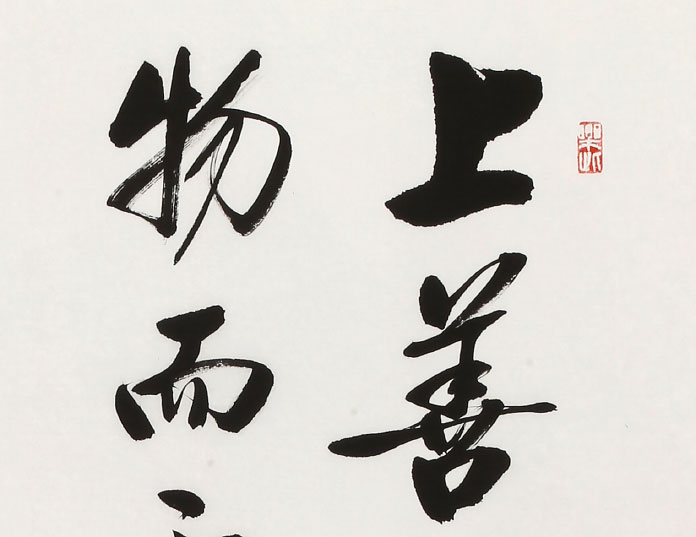 上善
物而